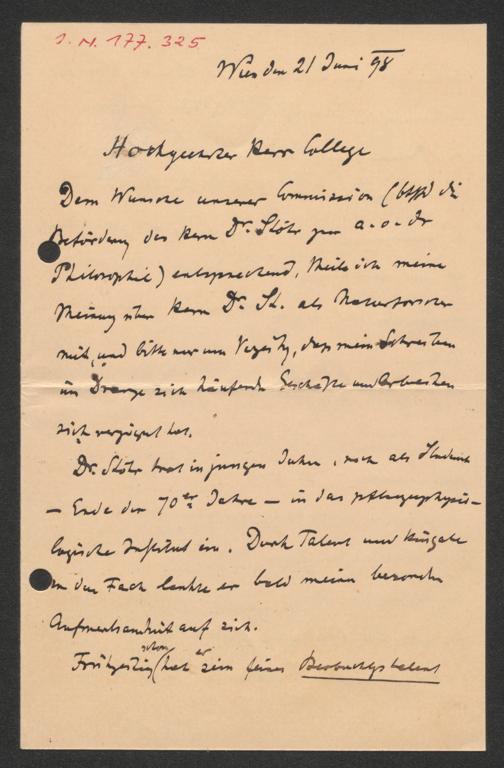 J. N. 177.325
Wien den 21 Juni 98
Hochgeehrter Herr College
Dem Wunsche unserer Commission (btffd die
Beförderung des Herrn Dr. Stöhr zum a. o. Pr
Philosophie) entsprechend, theile ich meine
Meinung über Herrn Dr. St. als Naturforscher
mit, und bitte nur um Verzeihg, dass mein Schreiben
im Drange sich häufender Geschäfte und Arbeiten
sich verzögert hat.
Dr. Stöhr trat in jungen Jahren, noch als Student
– Ende der 70er Jahre – in das pflanzenphysio-
logische Institut ein. Durch Talent und Hingabe
an das Fach lenkte er bald meine besondere
Aufmerksamkeit auf sich.
Frühzeitig schon hat er sein feines Beobachtgstalent